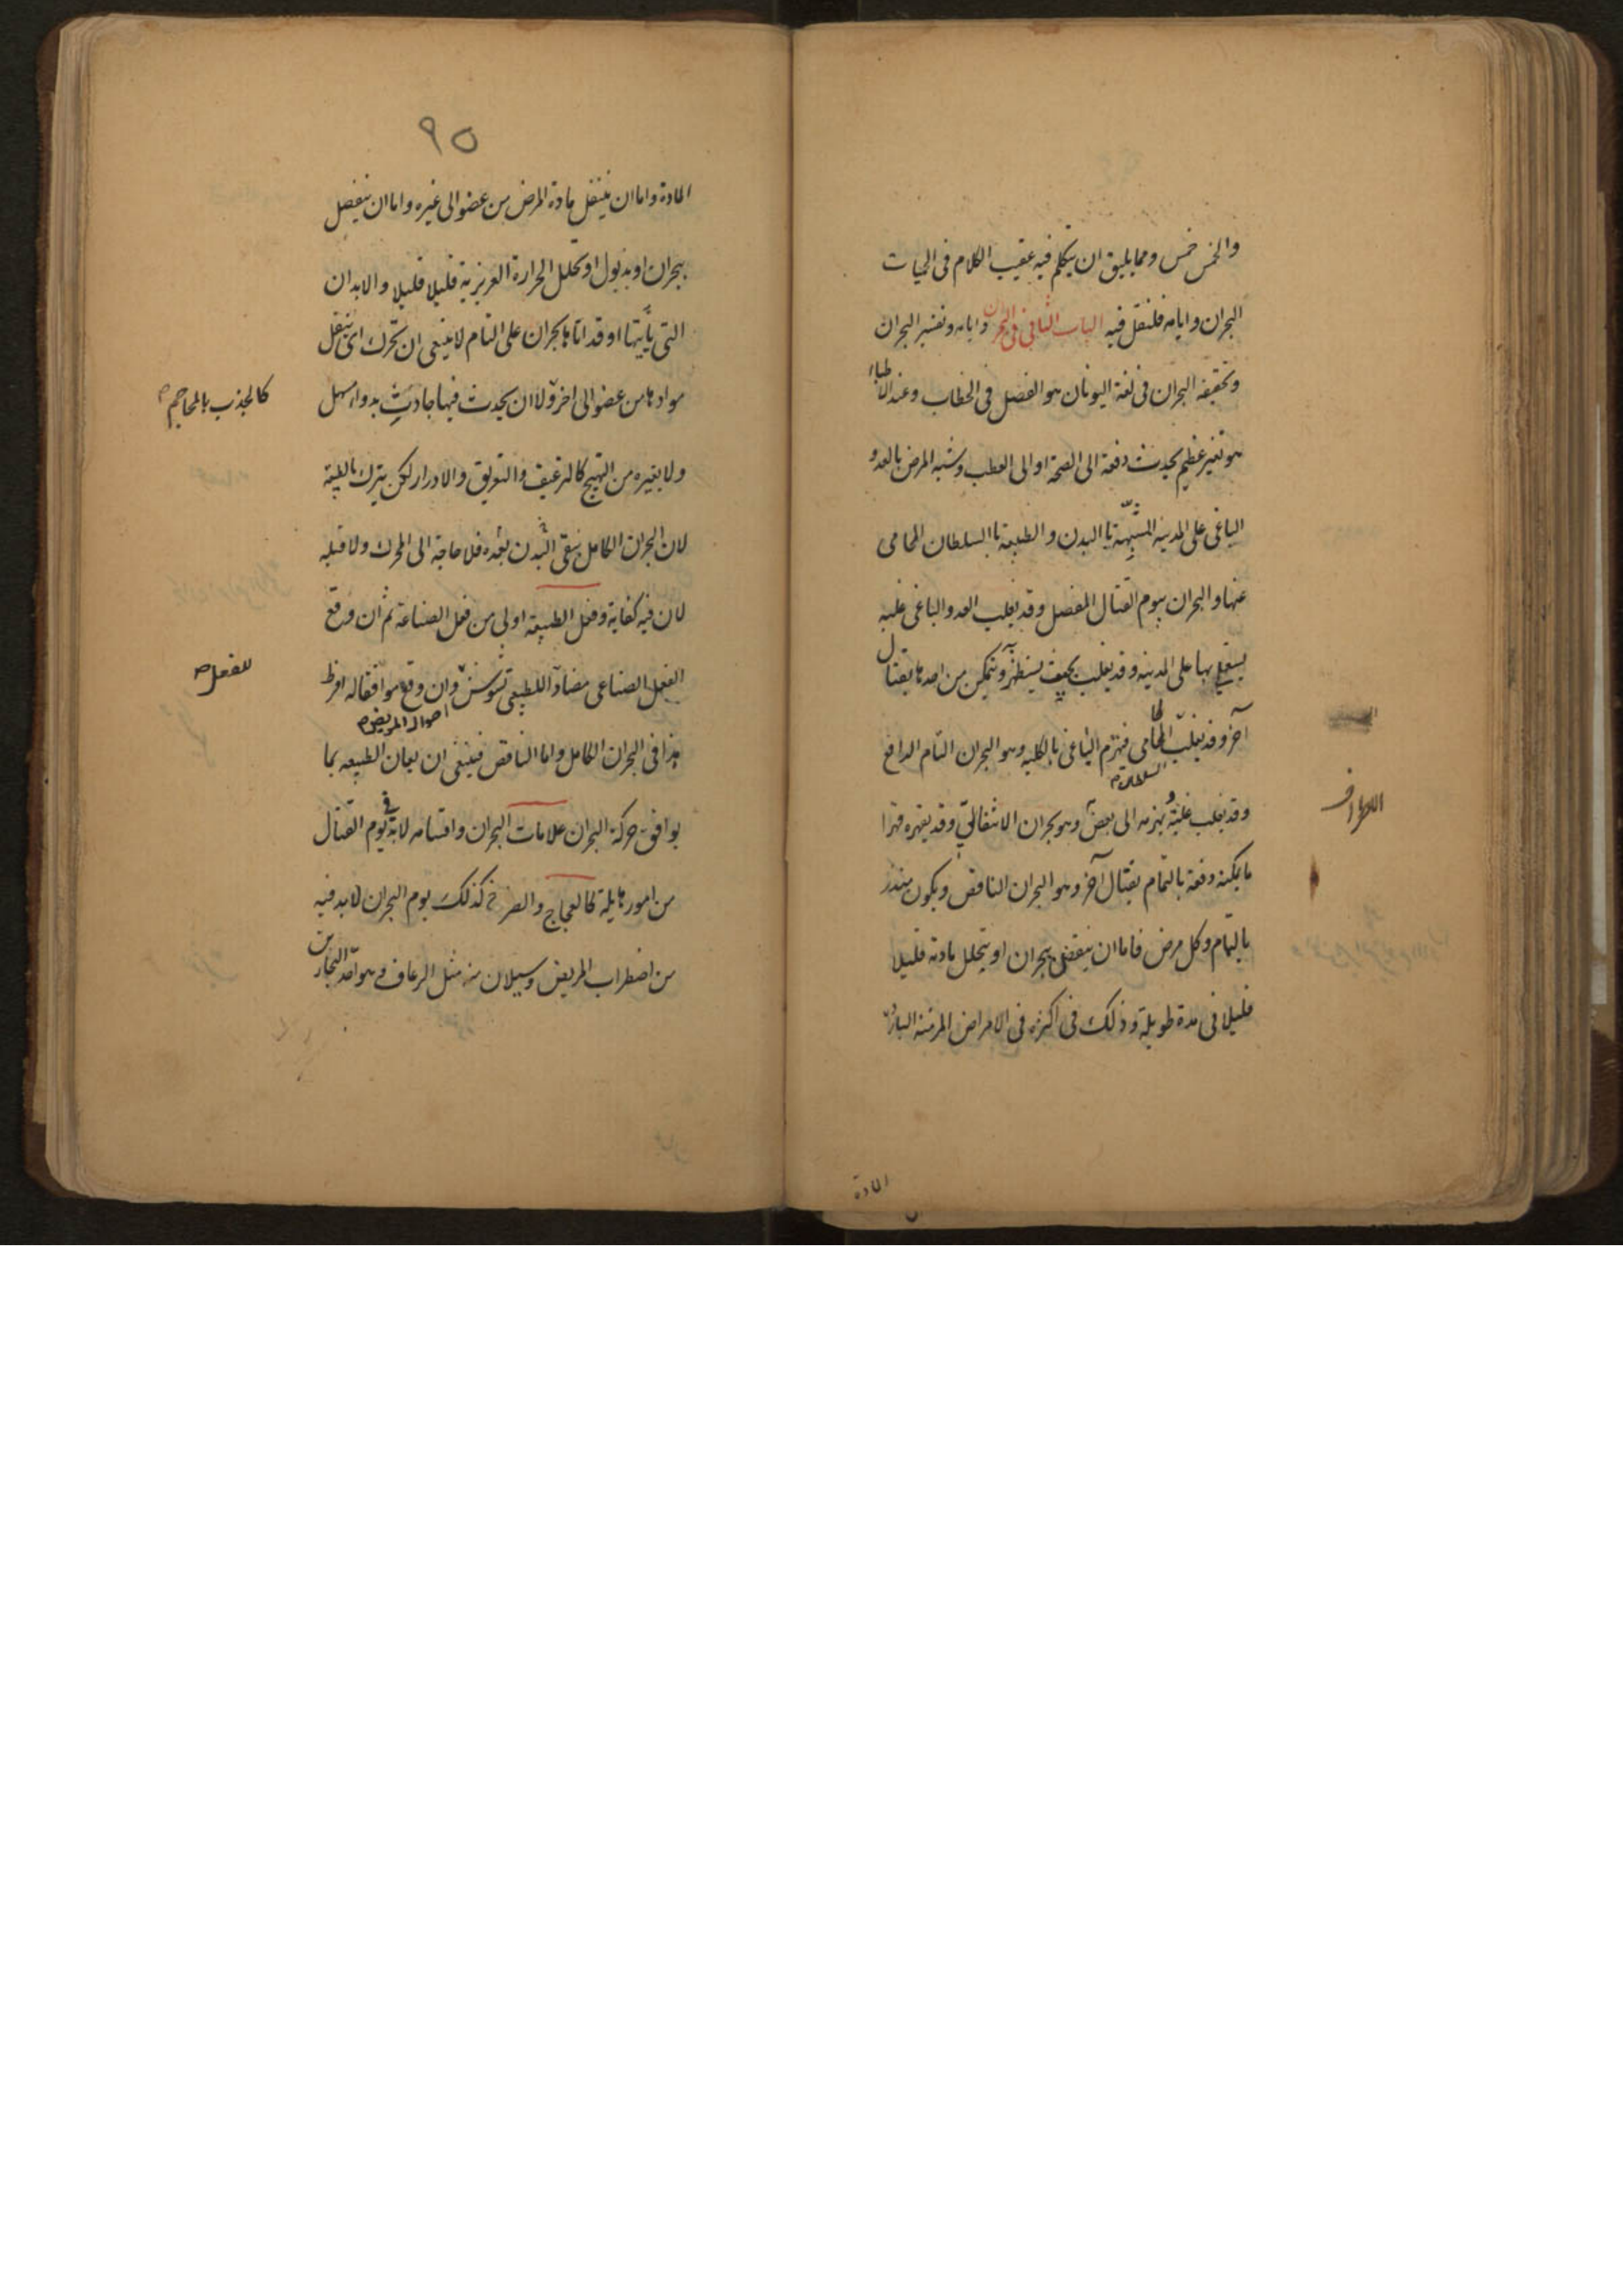 والخمس خمس ومما يليق ان يتكلم فيه عقيب الكلام فى الحميات
البحران وايامه فلنقل فيه الباب الثانى فى البحران وايامه وتفسير البحران
وتحقيقه البحران فى لغة اليونان هو الفصل فى الخطاب وعند الاطباء
هو تغير عظيم يحدث دفعة الى الصحة او الى العطب وشبه المرض بالعدو
الباغى على المدينة المشبهة باالبدن والطبيعة باالسلطان الحامى
عنها والبحران بيوم القتال المفصل وقد يغلب العدو الباغى غلبة
يستولى بها على المدينة وقد يغلب بحيث يستظهر ويتمكن من اخذها بقتال
آخر وقد يغلب الحامى فيهزم الباغى بالكلية وهو البحران التام الدافع
السلطان
وقد يغلب غلبة يهزمه الى بعض وهو بحران الانتقالى وقد يقهره قهرا
الاطراف
ما يمكنه دفعة بالتمام بقتال آخر وهو البحران الناقص ويكون منذر
بالتمام وكل مرض فاما ان ينقضى ببحران او يتحلل مادته قليلا
قليلا فى مدة طويلة وذلك فى اكثره فى الامراض المزمنة الباردة
المادة
٩٥
المادة واما ان ينتقل مادة المرض من عضو الى غيره واما ان ينفصل
ببحران او بذبول او تحلل الحرارة الغريزية قليلا قليلا والابدان
التى يأتيها او قد اتاها بحران على التمام لا ينبغى ان تحرك اى ينقل
موادها من عضو الى اخر ولا ان يحدث فيها حادث بدواء مسهل
كالجذب بالمحاجم
ولا بغيره من التهيج كالترعيف والتعريق والادرار لكن يترك بالطبيعة
لان البحران الكامل ينقى البدن بعده فلا حاجة الى المحرك ولا قبله
لان فيه كفاية وفعل الطبيعة اولى من فعل الصناعة ثم ان وقع
الفعل الصناعى مضادا للطبيعى تشوش وان وقع موافقا له افرط
للفعل
احوال المريض
هذا فى البحران الكامل واما الناقص فينبغى ان يعان الطبيعة بما
يوافق حركة البحران علامات البحران واقسامه لابد فى يوم القتال
من امور هايلة كالعجاج والصراخ كذلك يوم البحران لابد فيه
من اضطراب المريض وسيلان منه مثل الرعاف وهو احد البحارين